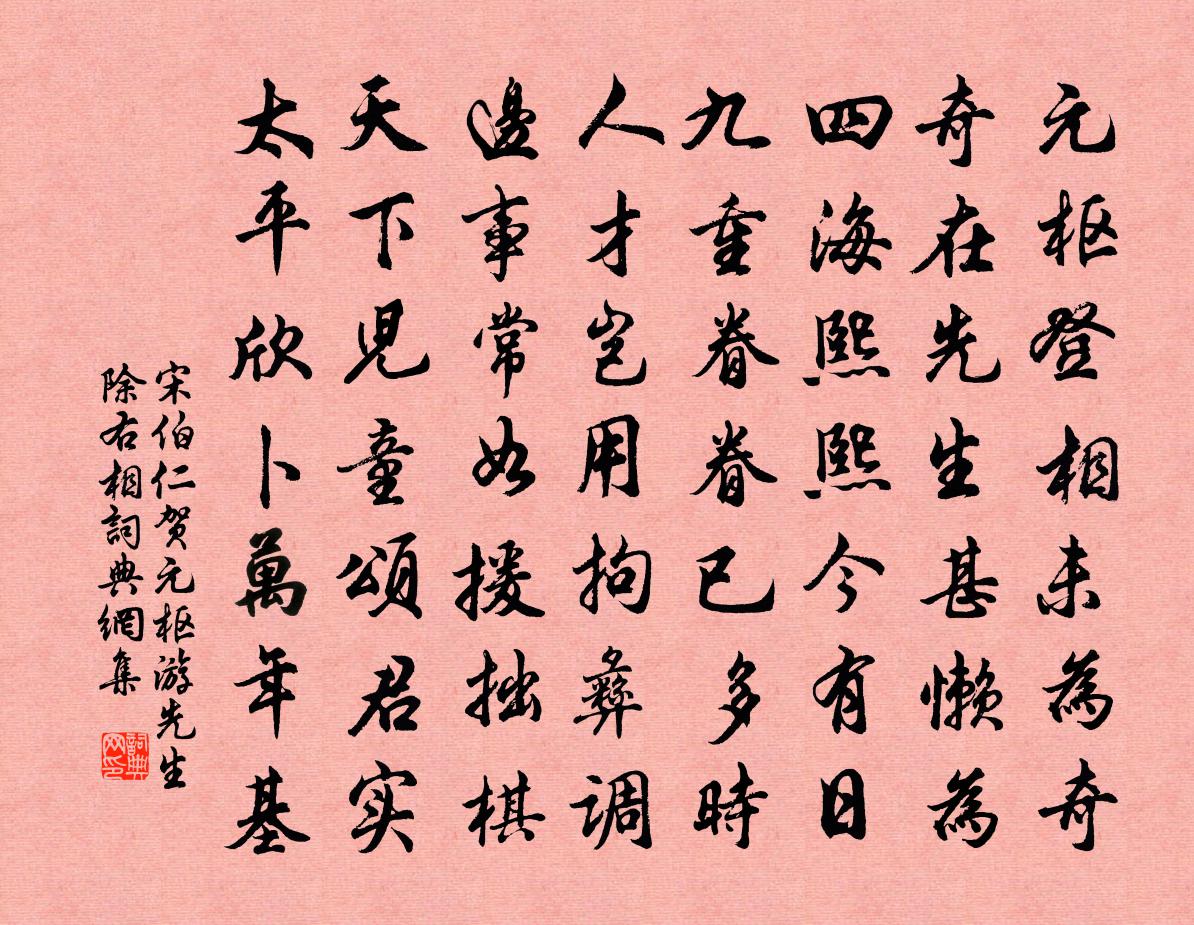 元枢登相未為奇
奇在先生甚懒為
四海熙熙今有日
九重眷眷已多時
人才岂用拘彝調
邊事常如援拙棋
天下児童頌君实
太平欣卜萬年基
宋伯仁贺元枢游先生
除右相詞典網集
詞典网印